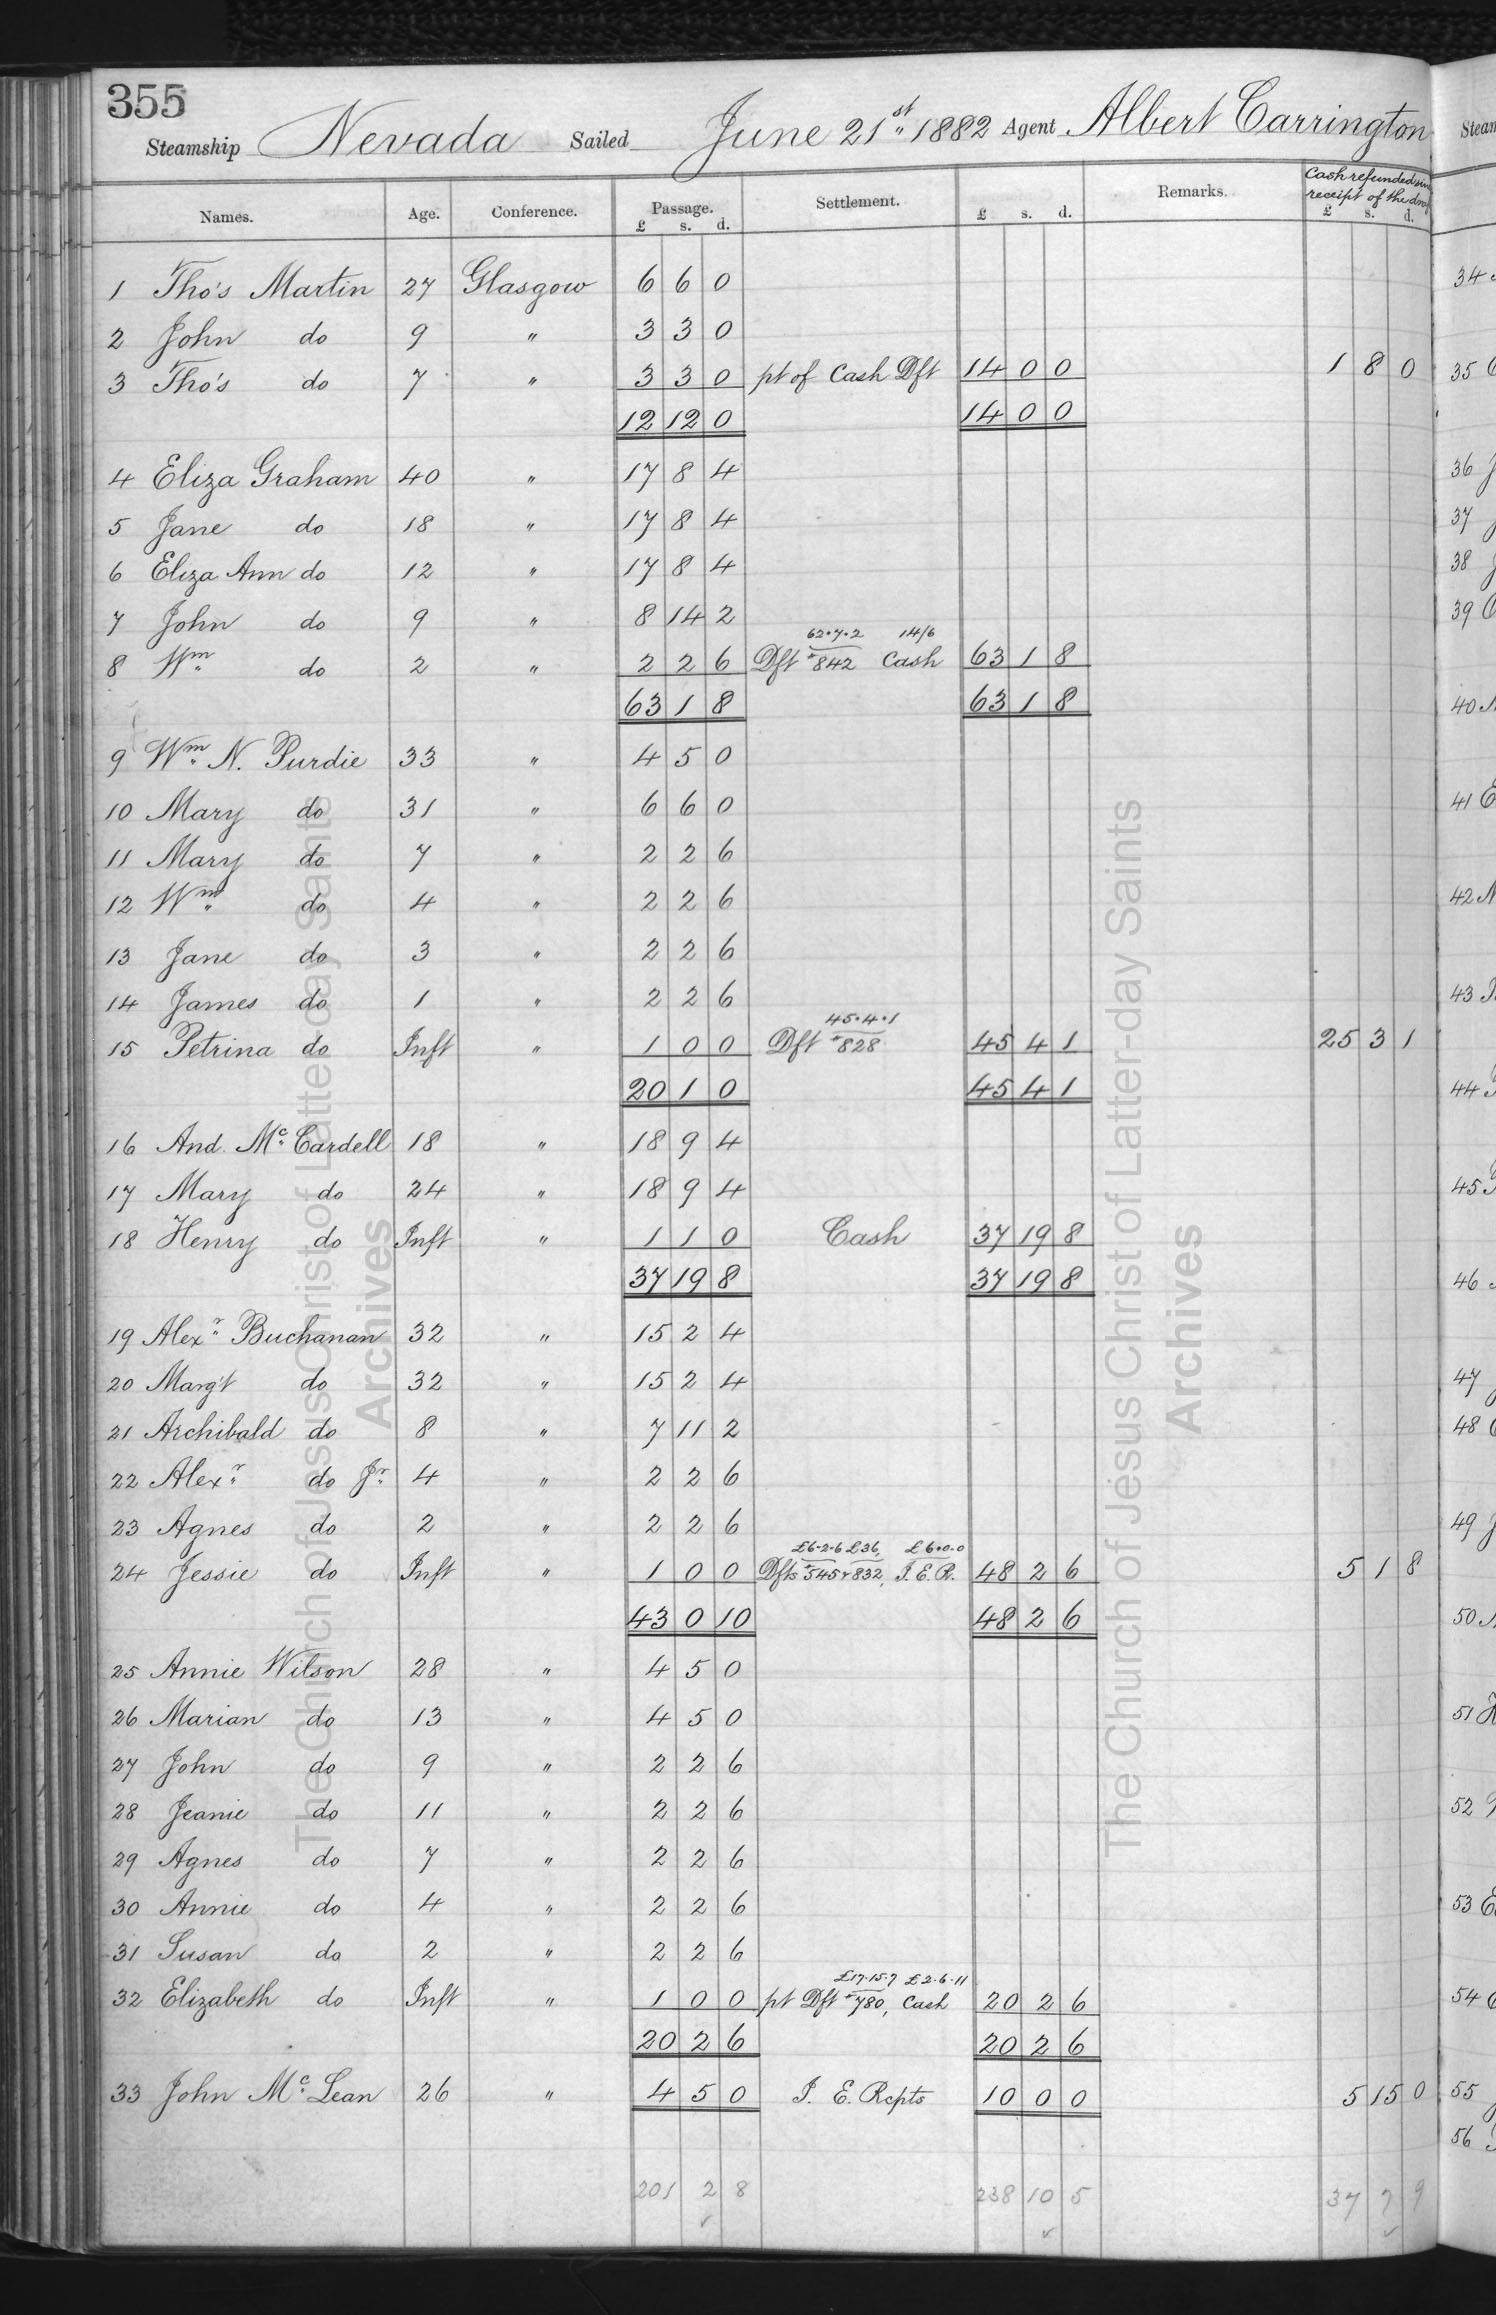 355
Steamship Nevada Sailed June 21st 1882 Agent Albert Carrington
Names. Age. Conference. Passage. £ s. d. Settlement. £ s. d. Remarks. Cash refunded receipt of the £ s. d.
1 Tho's Martin 27 Glasgow 6 6 0
2 John do 9 " 3 3 0
3 Tho's do 7 " 3 3 0 pt of Cash Dft 14 0 0 1 8 0
12 12 0 14 0 0
4 Eliza Graham 40 " 17 8 4
5 Jane do 18 " 17 8 4
6 Eliza Ann do 12 " 17 8 4
7 John do 9 " 8 14 2
62.7.2 14/6
8 Wm do 2 " 2 2 6 Dft #842 Cash 63 1 8
63 1 8 63 1 8
9 Wm N. Purdie 33 " 4 5 0
10 Mary do 31 " 6 6 0
11 Mary do 7 " 2 2 6
12 Wm do 4 " 2 2 6
13 Jane do 3 " 2 2 6
14 James do 1 " 2 2 6
45.4.1
15 Petrina do Inft " 1 0 0 Dft #828 45 4 1 25 3 1
20 1 0 45 4 1
16 And. Mc Cardell 18 " 18 9 4
17 Mary do 24 " 18 9 4
18 Henry do Inft " 1 1 0 Cash 37 19 8
37 19 8 37 19 8
19 Alexr Buchanan 32 " 15 2 4
20 Marg't do 32 " 15 2 4
21 Archibald do 8 " 7 11 2
22 Alexr do Jr 4 " 2 2 6
23 Agnes do 2 " 2 2 6
£6-2-6 £36, £6.0.0
24 Jessie do Inft " 1 0 0 Dfts #545 + 832, I. E. R. 48 2 6 5 1 8
43 0 10 48 2 6
25 Annie Wilson 28 " 4 5 0
26 Marian do 13 " 4 5 0
27 John do 9 " 2 2 6
28 Jeanie do 11 " 2 2 6
29 Agnes do 7 " 2 2 6
30 Annie do 4 " 2 2 6
31 Susan do 2 " 2 2 6
£17.15.7 £2.6.11
32 Elizabeth do Inft " 1 0 0 pt Dft #780, Cash 20 2 6
20 2 6 20 2 6
33 John Mc Lean 26 " 4 5 0 I. E. Rcpts 10 0 0 5 15 0
201 2 8 238 10 5 37 7 9
Steam
34
35
36
37
38
39
40
41
42
43
44
45
46
47
48
49
50
51
52
53
54
55
56
The Church of Jesus Christ of Latter-day Saints
Archives
The Church of Jesus Christ of Latter-day Saints
Archives